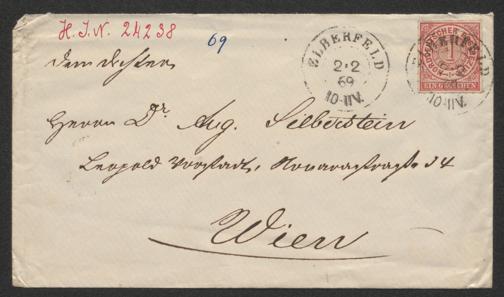 H.I.N. 24238
69
Dem Dichter
ELBERFELD
2·2
69
10-11V.
NORDDEUTSCHER POSTBEZIRK
1
EIN GROSCHEN
ELBERFELD
10-11V.
Herrn Dr. Aug. Silberstein
Leopold Vorstadt, Novaragasse 34
Wien